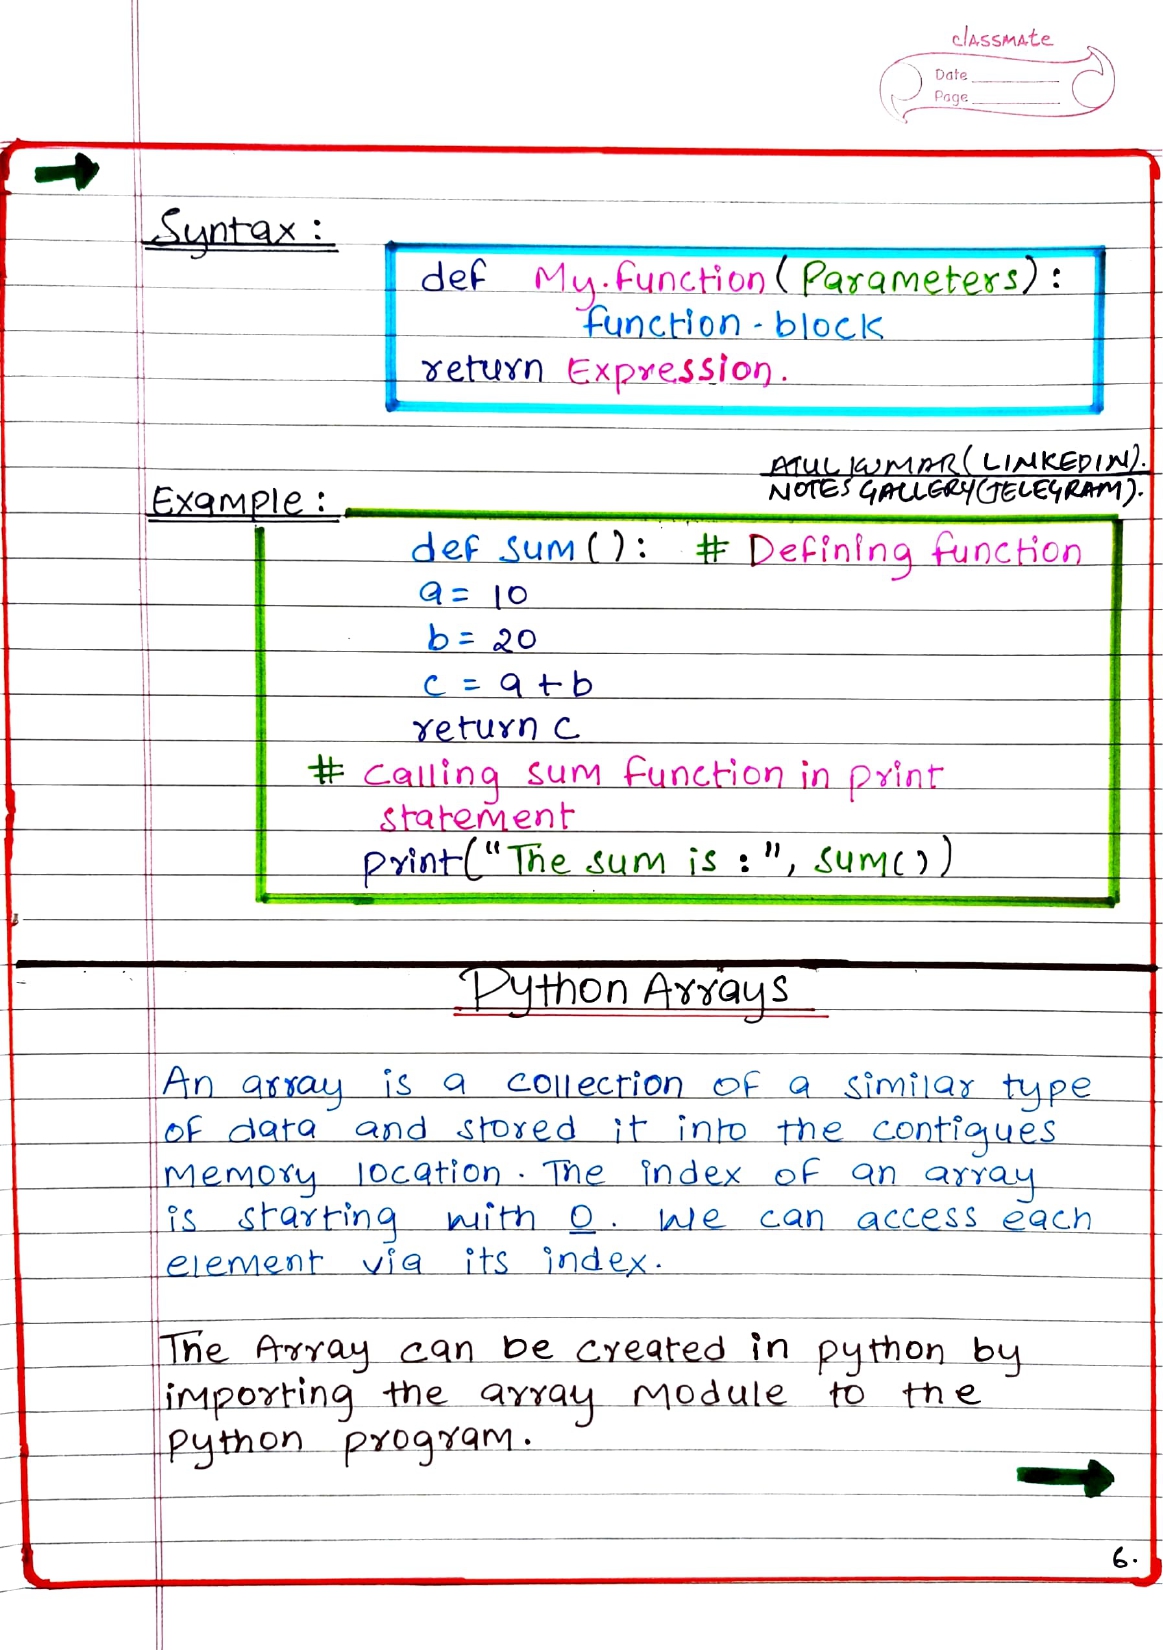 classmate
Date
Page
Syntax :
def My.function (Parameters) :
function - block
return Expression.
ATUL KUMAR (LINKEDIN).
NOTES GALLERY (TELEGRAM).
Example :
def sum () : # Defining function
a = 10
b = 20
c = a + b
return c
# calling sum function in print
statement
print("The sum is :", sum())
Python Arrays
An array is a collection of a similar type
of data and stored it into the contigues
memory location. The index of an array
is starting with 0. We can access each
element via its index.
The Array can be created in python by
importing the array module to the
python program.
6.